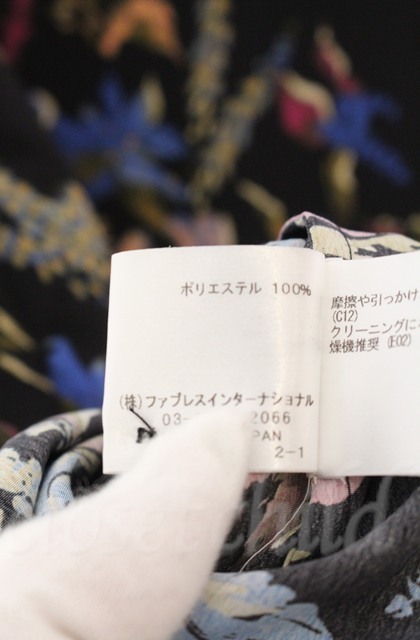 ポリエステル 100%
(株)ファブレスインターナショナル
03- 2066
PAN
2-1
摩擦や引っかけ
(C12)
クリーニングに
燥機推奨 (E02)
closet child